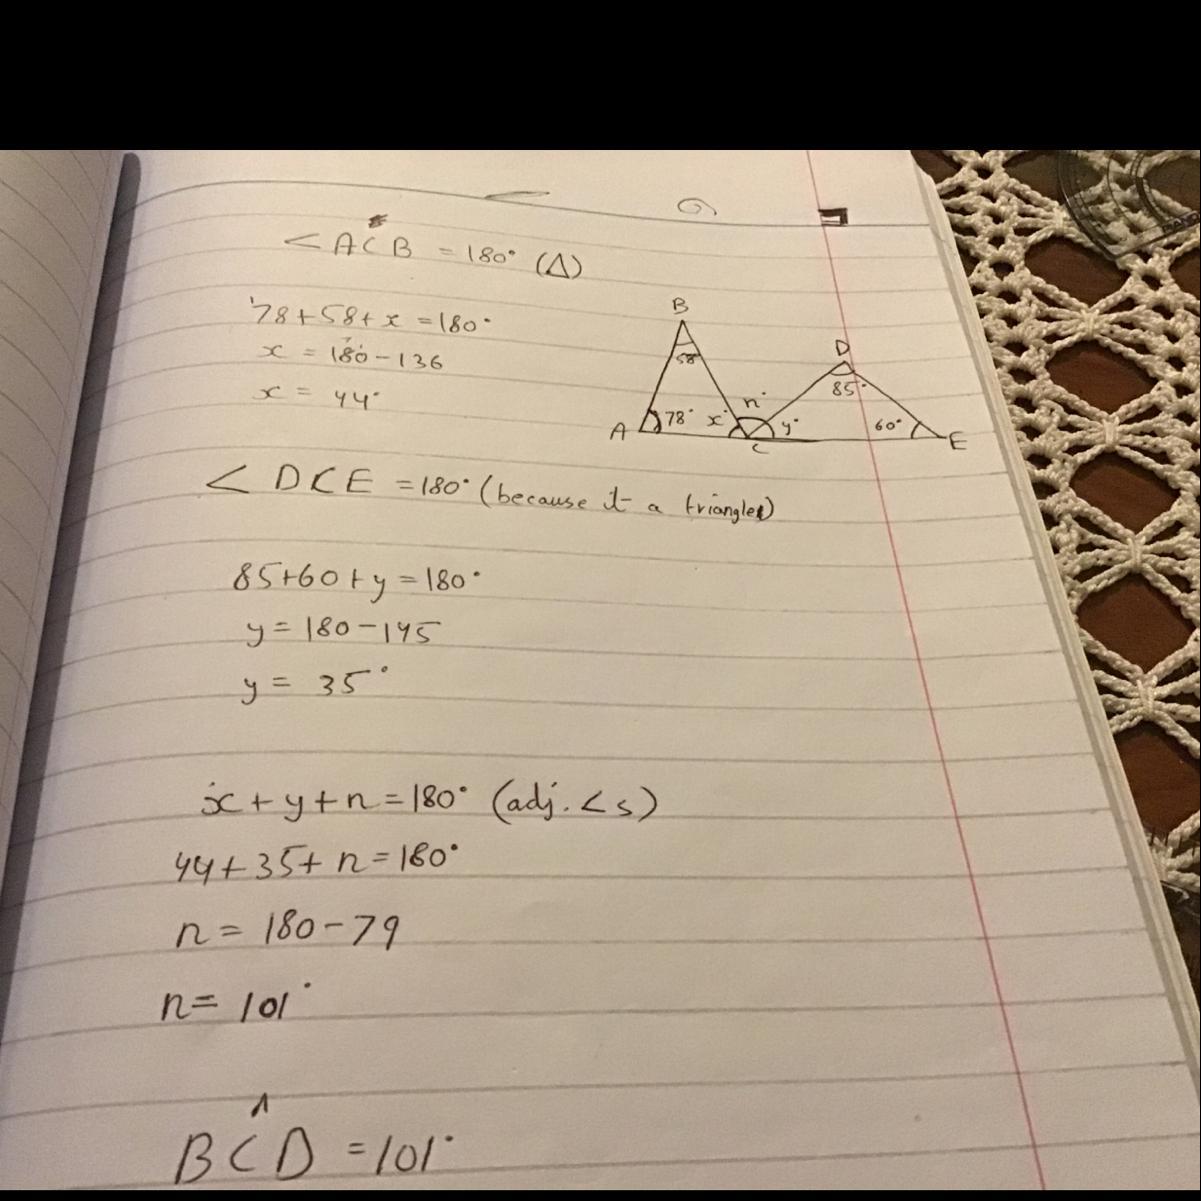 <AĈB = 180° (Δ)
78+58+x = 180°
x = 180-136
x = 44°
B
58°
D
85°
n°
A 78° x° y° 60° E
C
<DCE = 180° (because it a triangle)
85+60+y = 180°
y = 180-145
y = 35°
x+y+n = 180° (adj. <s)
44+35+n = 180°
n = 180-79
n = 101°
BĈD = 101°